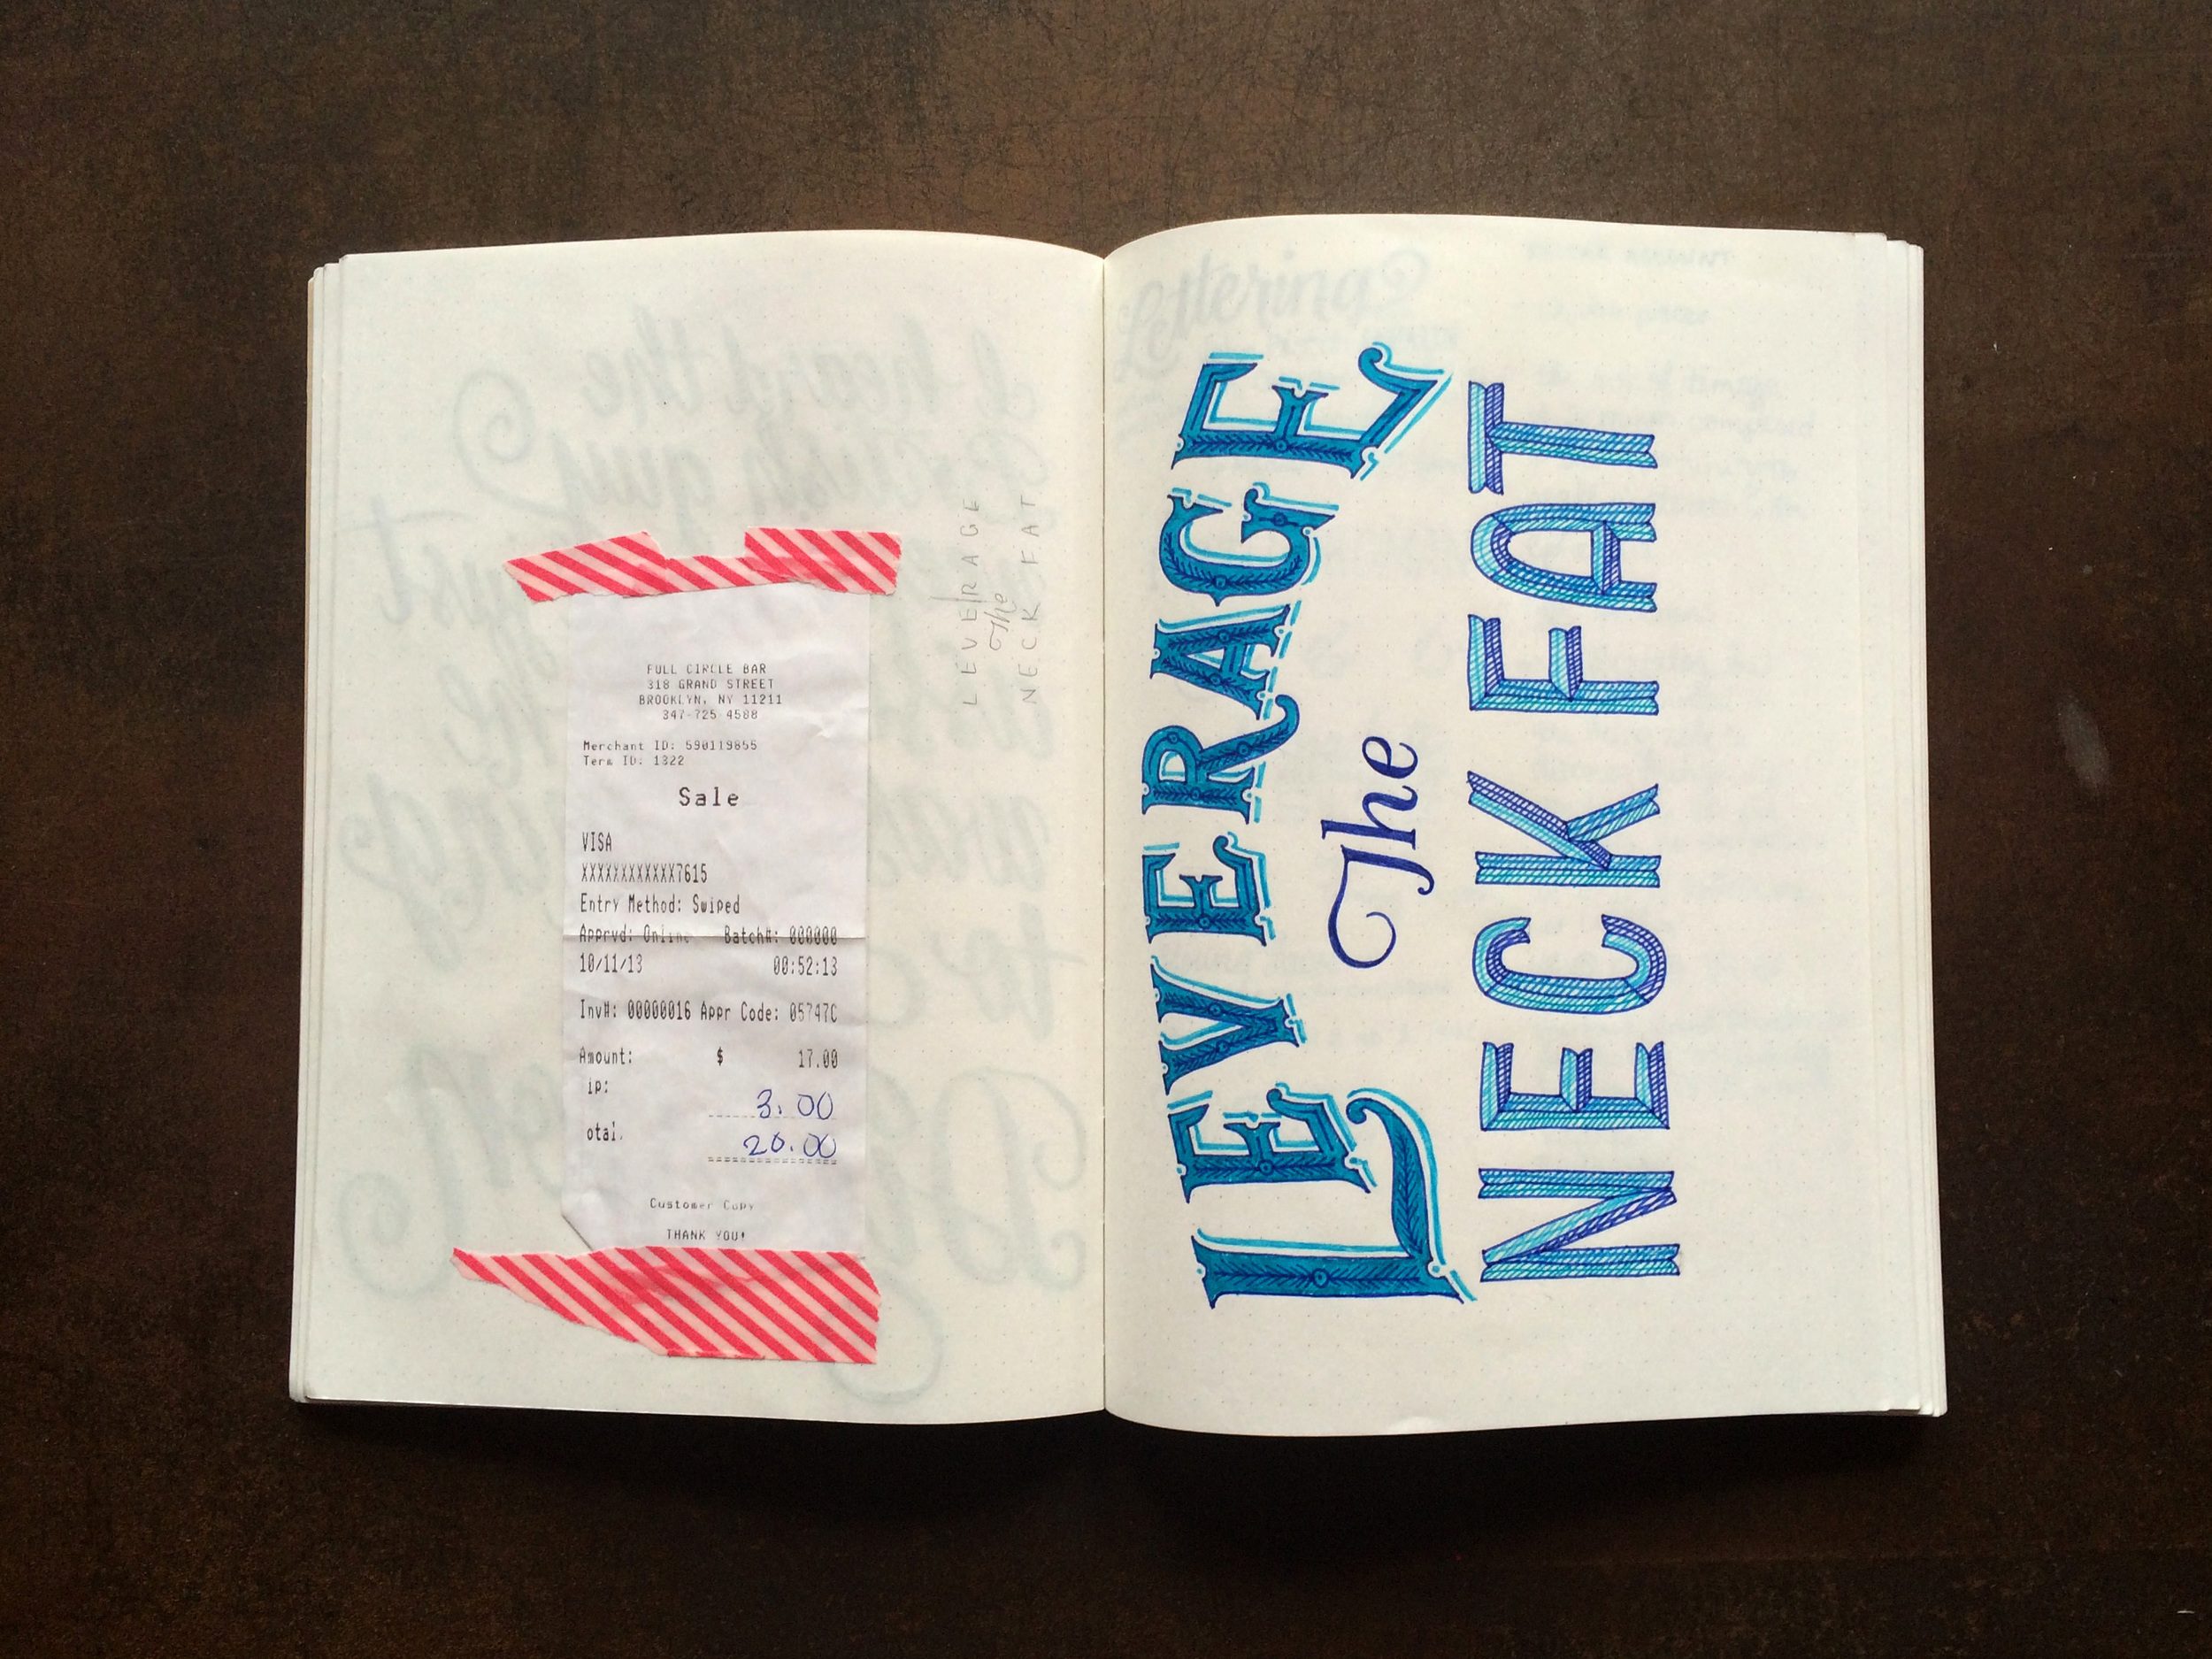 FULL CIRCLE BAR
318 GRAND STREET
BROOKLYN, NY 11211
347-725-4588
Merchant ID: 590119855
Term ID: 1322
Sale
VISA
XXXXXXXXXXXX7615
Entry Method: Swiped
Apprvd: Online Batch#: 000000
10/11/13 00:52:13
Inv#: 00000016 Appr Code: 05747C
Amount: $ 17.00
ip: 3.00
otal: 20.00
Customer Copy
THANK YOU!
LEVERAGE
The
NECK FAT
LEVERAGE
The
NECK FAT
Lettering